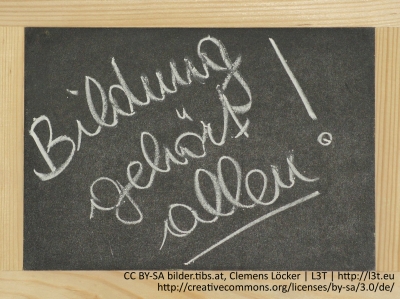 Bildung
gehört
allen!
CC BY-SA bilder.tibs.at, Clemens Löcker | L3T | http://l3t.eu
http://creativecommons.org/licenses/by-sa/3.0/de/